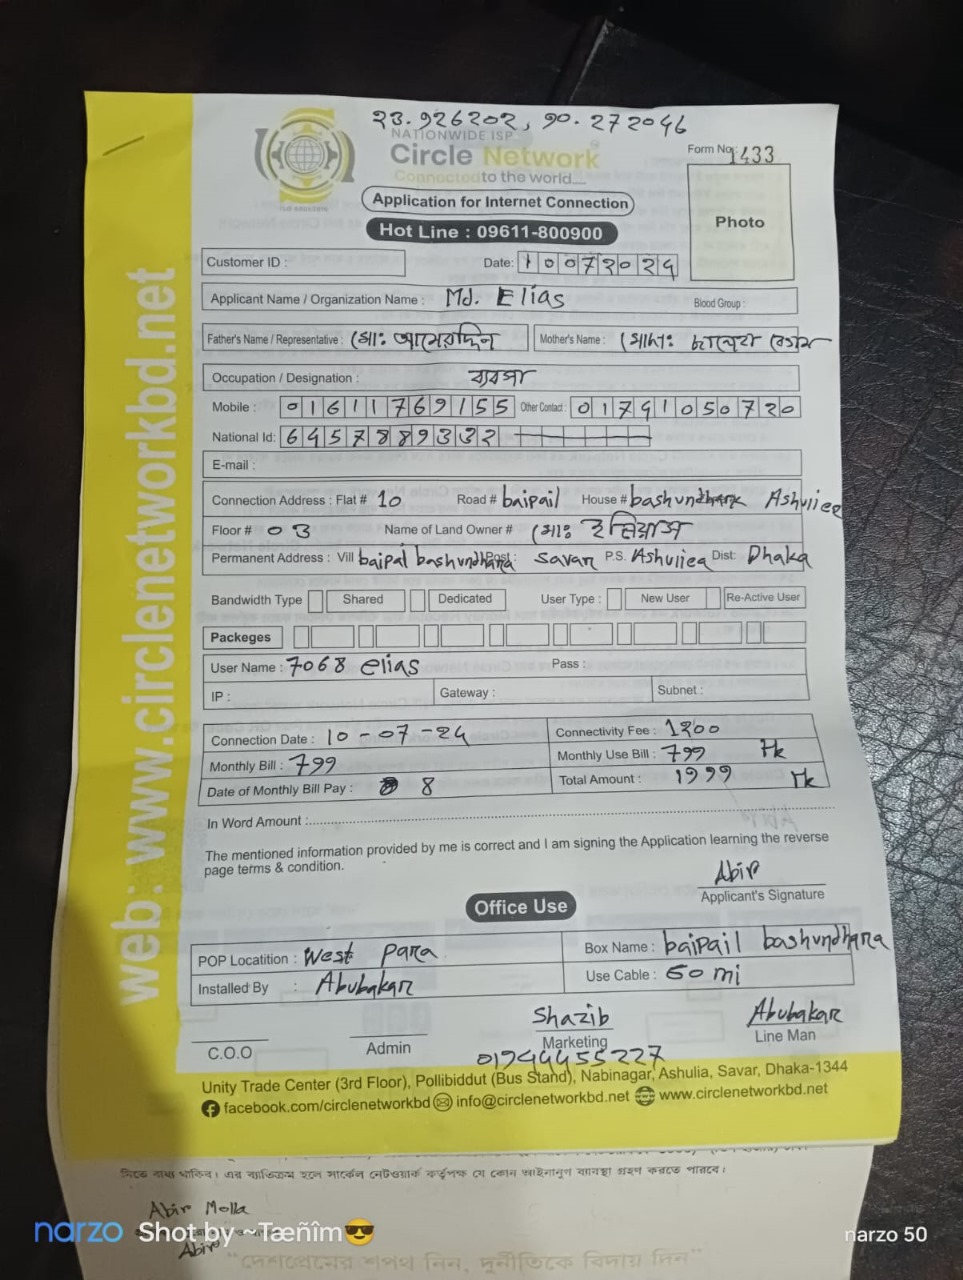 23.926202, 90.272046
NATIONWIDE ISP
Circle Network
Connected to the world...
Form No: 1433
Photo
Application for Internet Connection
Hot Line : 09611-800900
Customer ID :
Date: 10072024
Applicant Name / Organization Name : Md. Elias
Blood Group :
Father's Name / Representative : মোঃ আমেরদ্দিন
Mother's Name : মোসাঃ বেগম
Occupation / Designation : ব্যবসা
Mobile : 01611769155 Other Contact : 01741050720
National Id: 6457889332
E-mail :
Connection Address : Flat # 10 Road # baipail House # bashundhara Ashuliea
Floor # 03 Name of Land Owner # মোঃ ইলিয়াস
Permanent Address : Vill baipal bashundhara Post : savar P.S. Ashuliea Dist: Dhaka
Bandwidth Type Shared Dedicated User Type : New User Re-Active User
Packeges
User Name : 7068 elias Pass :
IP : Gateway : Subnet :
Connection Date : 10-07-24 Connectivity Fee : 1200
Monthly Bill : 799 Monthly Use Bill : 799 Tk
Date of Monthly Bill Pay : 8 Total Amount : 1999 Tk
In Word Amount :
The mentioned information provided by me is correct and I am signing the Application learning the reverse
page terms & condition.
Abir
Applicant's Signature
Office Use
POP Locatition : West para Box Name : baipail bashundhara
Installed By : Abubakar Use Cable : 60 mi
Shazib Abubakar
C.O.O Admin Marketing Line Man
01744455227
Unity Trade Center (3rd Floor), Pollibiddut (Bus Stand), Nabinagar, Ashulia, Savar, Dhaka-1344
facebook.com/circlenetworkbd info@circlenetworkbd.net www.circlenetworkbd.net
web: www.circlenetworkbd.net
দিতে বাধ্য থাকিব। এর ব্যতিক্রম হলে সার্কেল নেটওয়ার্ক কর্তৃপক্ষ যে কোন আইনানুগ ব্যবস্থা গ্রহণ করতে পারবে।
Abir Molla
Abir
"দেশপ্রেমের শপথ নিন, দুর্নীতিকে বিদায় দিন"
narzo Shot by ~Tæñîm😎 narzo 50